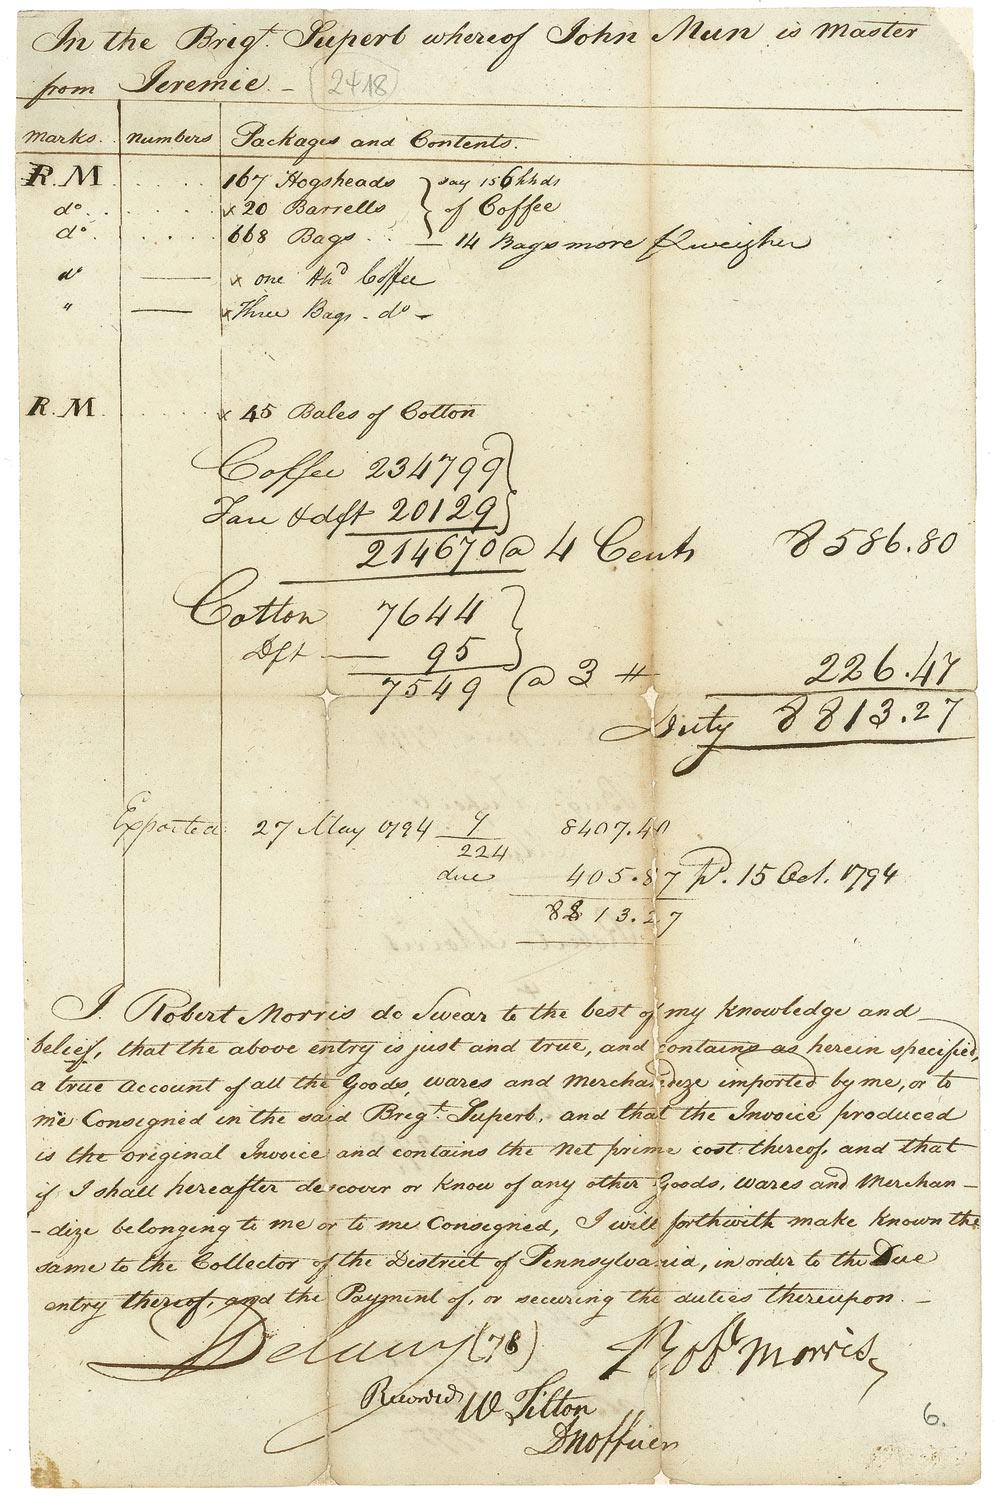 In the Brigt. Superb whereof John Mun is Master
from Jeremie. - (2418)
marks. numbers Packages and Contents.
R. M 167 Hogsheads say 156 hhds
do. x 20 Barrells of Coffee
do. 668 Bags - 14 Bags more weigher
do x one Hhd Coffee
" x Three Bags - do -
R. M. x 45 Bales of Cotton
Coffee 234799
Tare & dft 20129
214670 @ 4 Cents 8586.80
Cotton 7644
Dft 95
7549 @ 3 " 226.47
Duty 8813.27
Exported 27 May 1794 8407.40
224
due 405.87 pd. 15 Oct. 1794
8813.27
I. Robert Morris do Swear to the best of my knowledge and
belief, that the above entry is just and true, and contains as herein specified,
a true account of all the Goods, wares and Merchandize imported by me, or to
me Consigned in the said Brigt. Superb. and that the Invoice produced
is the original Invoice and contains the net prime cost thereof, and that
if I shall hereafter descover or know of any other Goods, wares and Merchan-
-dize belonging to me or to me Consigned, I will forthwith make known the
same to the Collector of the District of Pennsylvania, in order to the Due
entry thereof, and the Payment of, or securing the duties thereupon. -
Delany (78) Robt Morris
Recorded W Tilton
6.